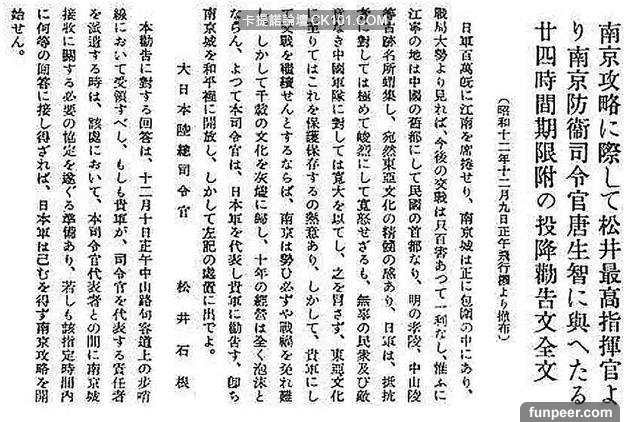 南京攻略に際して松井最高指揮官よ
り南京防衞司令官唐生智に與へたる
廿四時間期限附の投降勸告文全文
(昭和十二年十二月九日正午飛行機より撒布)
日軍百萬既に江南を席捲せり、南京城は正に包圍の中にあり、
戰局大勢より見れば、今後の交戰は只百害あつて一利なし、惟ふに
江寧の地は中國の舊都にして民國の首都なり、明の孝陵、中山陵
等古跡名所蝟集し、宛然東亞文化の精髓の感あり、日軍は、抵抗
者に對しては極めて峻烈にして寛恕せざるも、無辜の民衆及び敵
意なき中國軍隊に對しては寛大を以てし、之を冒さず、東亞文化
に至りてはこれを保護保存するの熱意あり、しかして、貴軍にし
て交戰を繼續せんとするならば、南京は勢ひ必ずや戰禍を免れ難
し、しかして千載の文化を灰燼に歸し、十年の經營は全く泡沫と
ならん、よつて本司令官は、日本軍を代表し貴軍に勸告す、卽ち
南京城を和平裡に開放し、しかして左記の處置に出でよ。
大日本陸總司令官 松井石根
本勸告に對する回答は、十二月十日正午中山路句容道上の步哨
線において受領すべし、もしも貴軍が、司令官を代表する責任者
を派遣する時は、該處において、本司令官代表者との間に南京城
接收に關する必要の協定を遂ぐる準備あり、若しも該指定時間內
に何等の回答に接し得ざれば、日本軍は已むを得ず南京攻略を開
始せん。
卡提諾論壇 CK101.COM
Uploaded at
funpeer.com